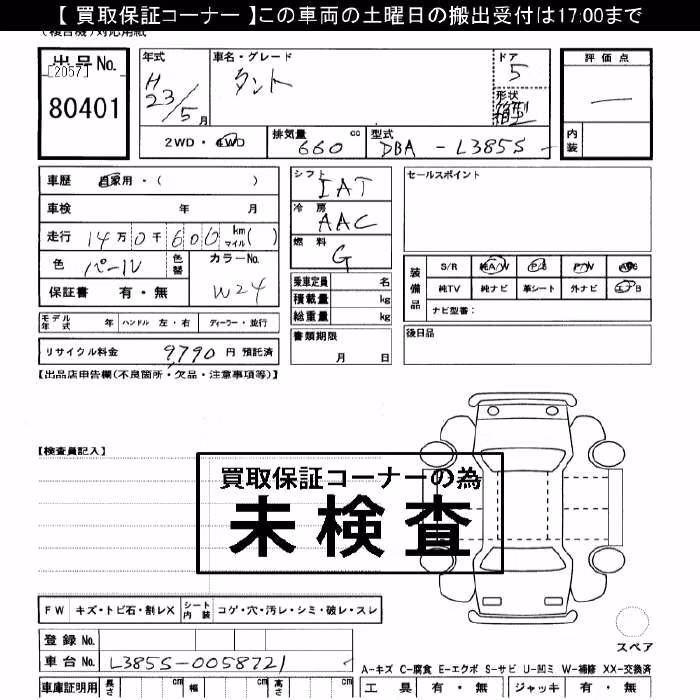 【 買取保証コーナー 】この車両の土曜日の搬出受付は17:00まで
(複合機)対応用紙
出品No.
[2057]
80401
年式
H23/5月
車名・グレード
タント
ドア
5
形状
箱型
評価点
―
内装
2WD・4WD
排気量 660 cc
型式 DBA - L385S -
車歴 自家用・( )
車検 年 月
走行 14万0千600 km マイル( )
色 パール 色替
カラーNo. W24
保証書 有・無
シフト IAT
冷房 AAC
燃料 G
乗車定員 名
積載量 kg
総重量 kg
セールスポイント
装備品
S/R 純A/W P/S P/W ABS
純TV 純ナビ 革シート 外ナビ エアB
ナビ型番:
モデル年式 年 ハンドル 左・右 ディーラー・並行
リサイクル料金 9,790 円 預託済
書類期限
月 日
後日品
【出品店申告欄(不良箇所・欠品・注意事項等)】
【検査員記入】
買取保証コーナーの為
未検査
FW キズ・トビ石・割レX シート内装 コゲ・穴・汚レ・シミ・破レ・スレ
スペア
登録No.
車台No. L385S-0058721
A-キズ C-腐食 E-エクボ S-サビ U-凹ミ W-補修 XX-交換済
車庫証明用 長さ cm 幅 cm 高さ cm
工具 有・無 ジャッキ 有・無